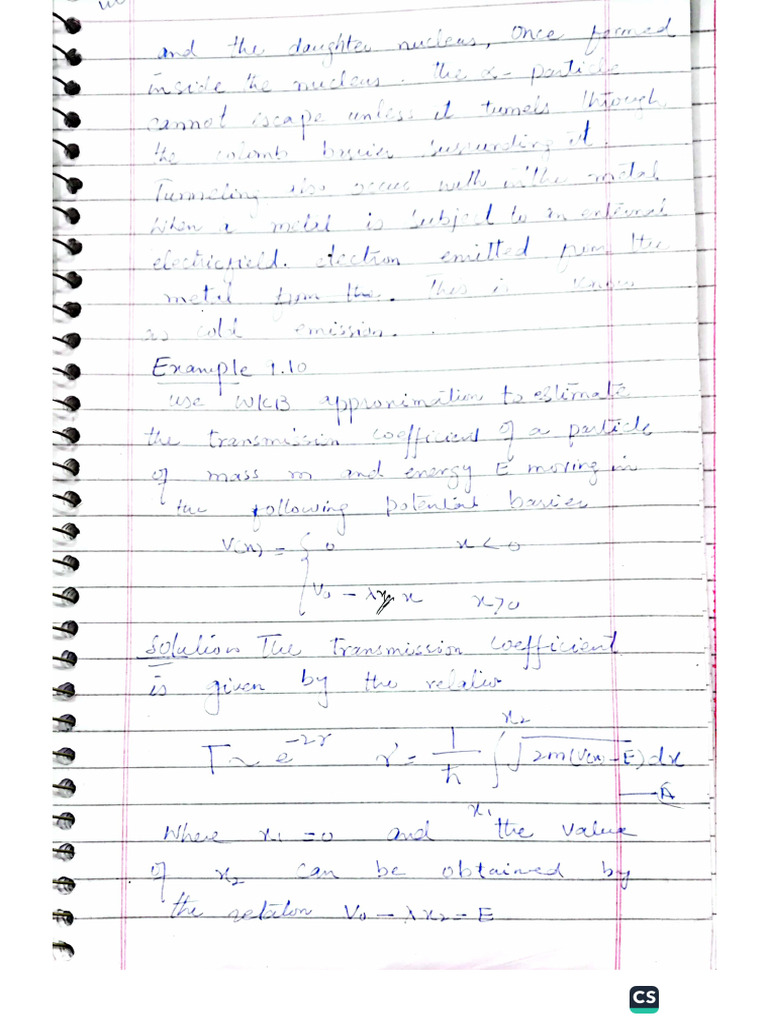 and the daughter nucleus, once formed
inside the nucleus. the α- particle
cannot escape unless it tunnels through
the colomb barrier surrounding it.
Tunneling also occus with in the metal
When a metal is subject to an external
electric field. electron emitted from the
metal from the. This is known
as cold emission.
Example 9.10
use WKB approximation to estimate
the transmission coefficient of a particle
of mass m and energy E moving in
the following potential barrier
V(x) = { 0 x < 0
V₀ - λ x x > 0
Solution The transmission coefficient
is given by the relation
T ~ e^{-2γ} γ = 1/ħ ∫_{x₁}^{x₂} √2m(V(x) - E) dx
—A
Where x₁ = 0 and the value
of x₂ can be obtained by
the relation V₀ - λx₂ = E
CS